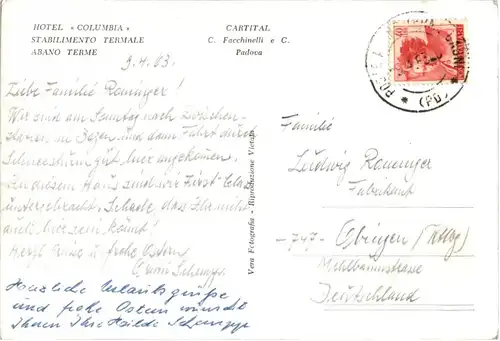 HOTEL « COLUMBIA »
STABILIMENTO TERMALE
ABANO TERME
CARTITAL
C. Facchinelli e C.
Padova
9.4.63.
Liebe Familie Roninger!
Wir sind am Samstag nach Zwischen-
station in Bozen und dann Fahrt durch
Schneesturm gut hier angekommen.
In diesem Haus sind wir First-Class
untergebracht. Schade, dass Ihr nicht
auch hier sein könnt!
Herzl. Grüsse u frohe Ostern
Herzliche Urlaubsgrüße
und frohe Ostern wünscht
Ihnen Ihre Hilde
Vera Fotografia - Riproduzione Vietata
Familie
Ludwig Roninger
Fabrikant
-747- Ebingen (Wttbg)
Mehlbaumstrasse
Deutschland
(PD)